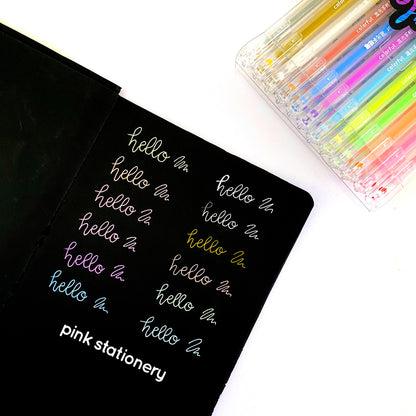 hello
hello
hello
hello
hello
hello
hello
hello
hello
hello
hello
hello
pink stationery
colorful
colorful
colorful